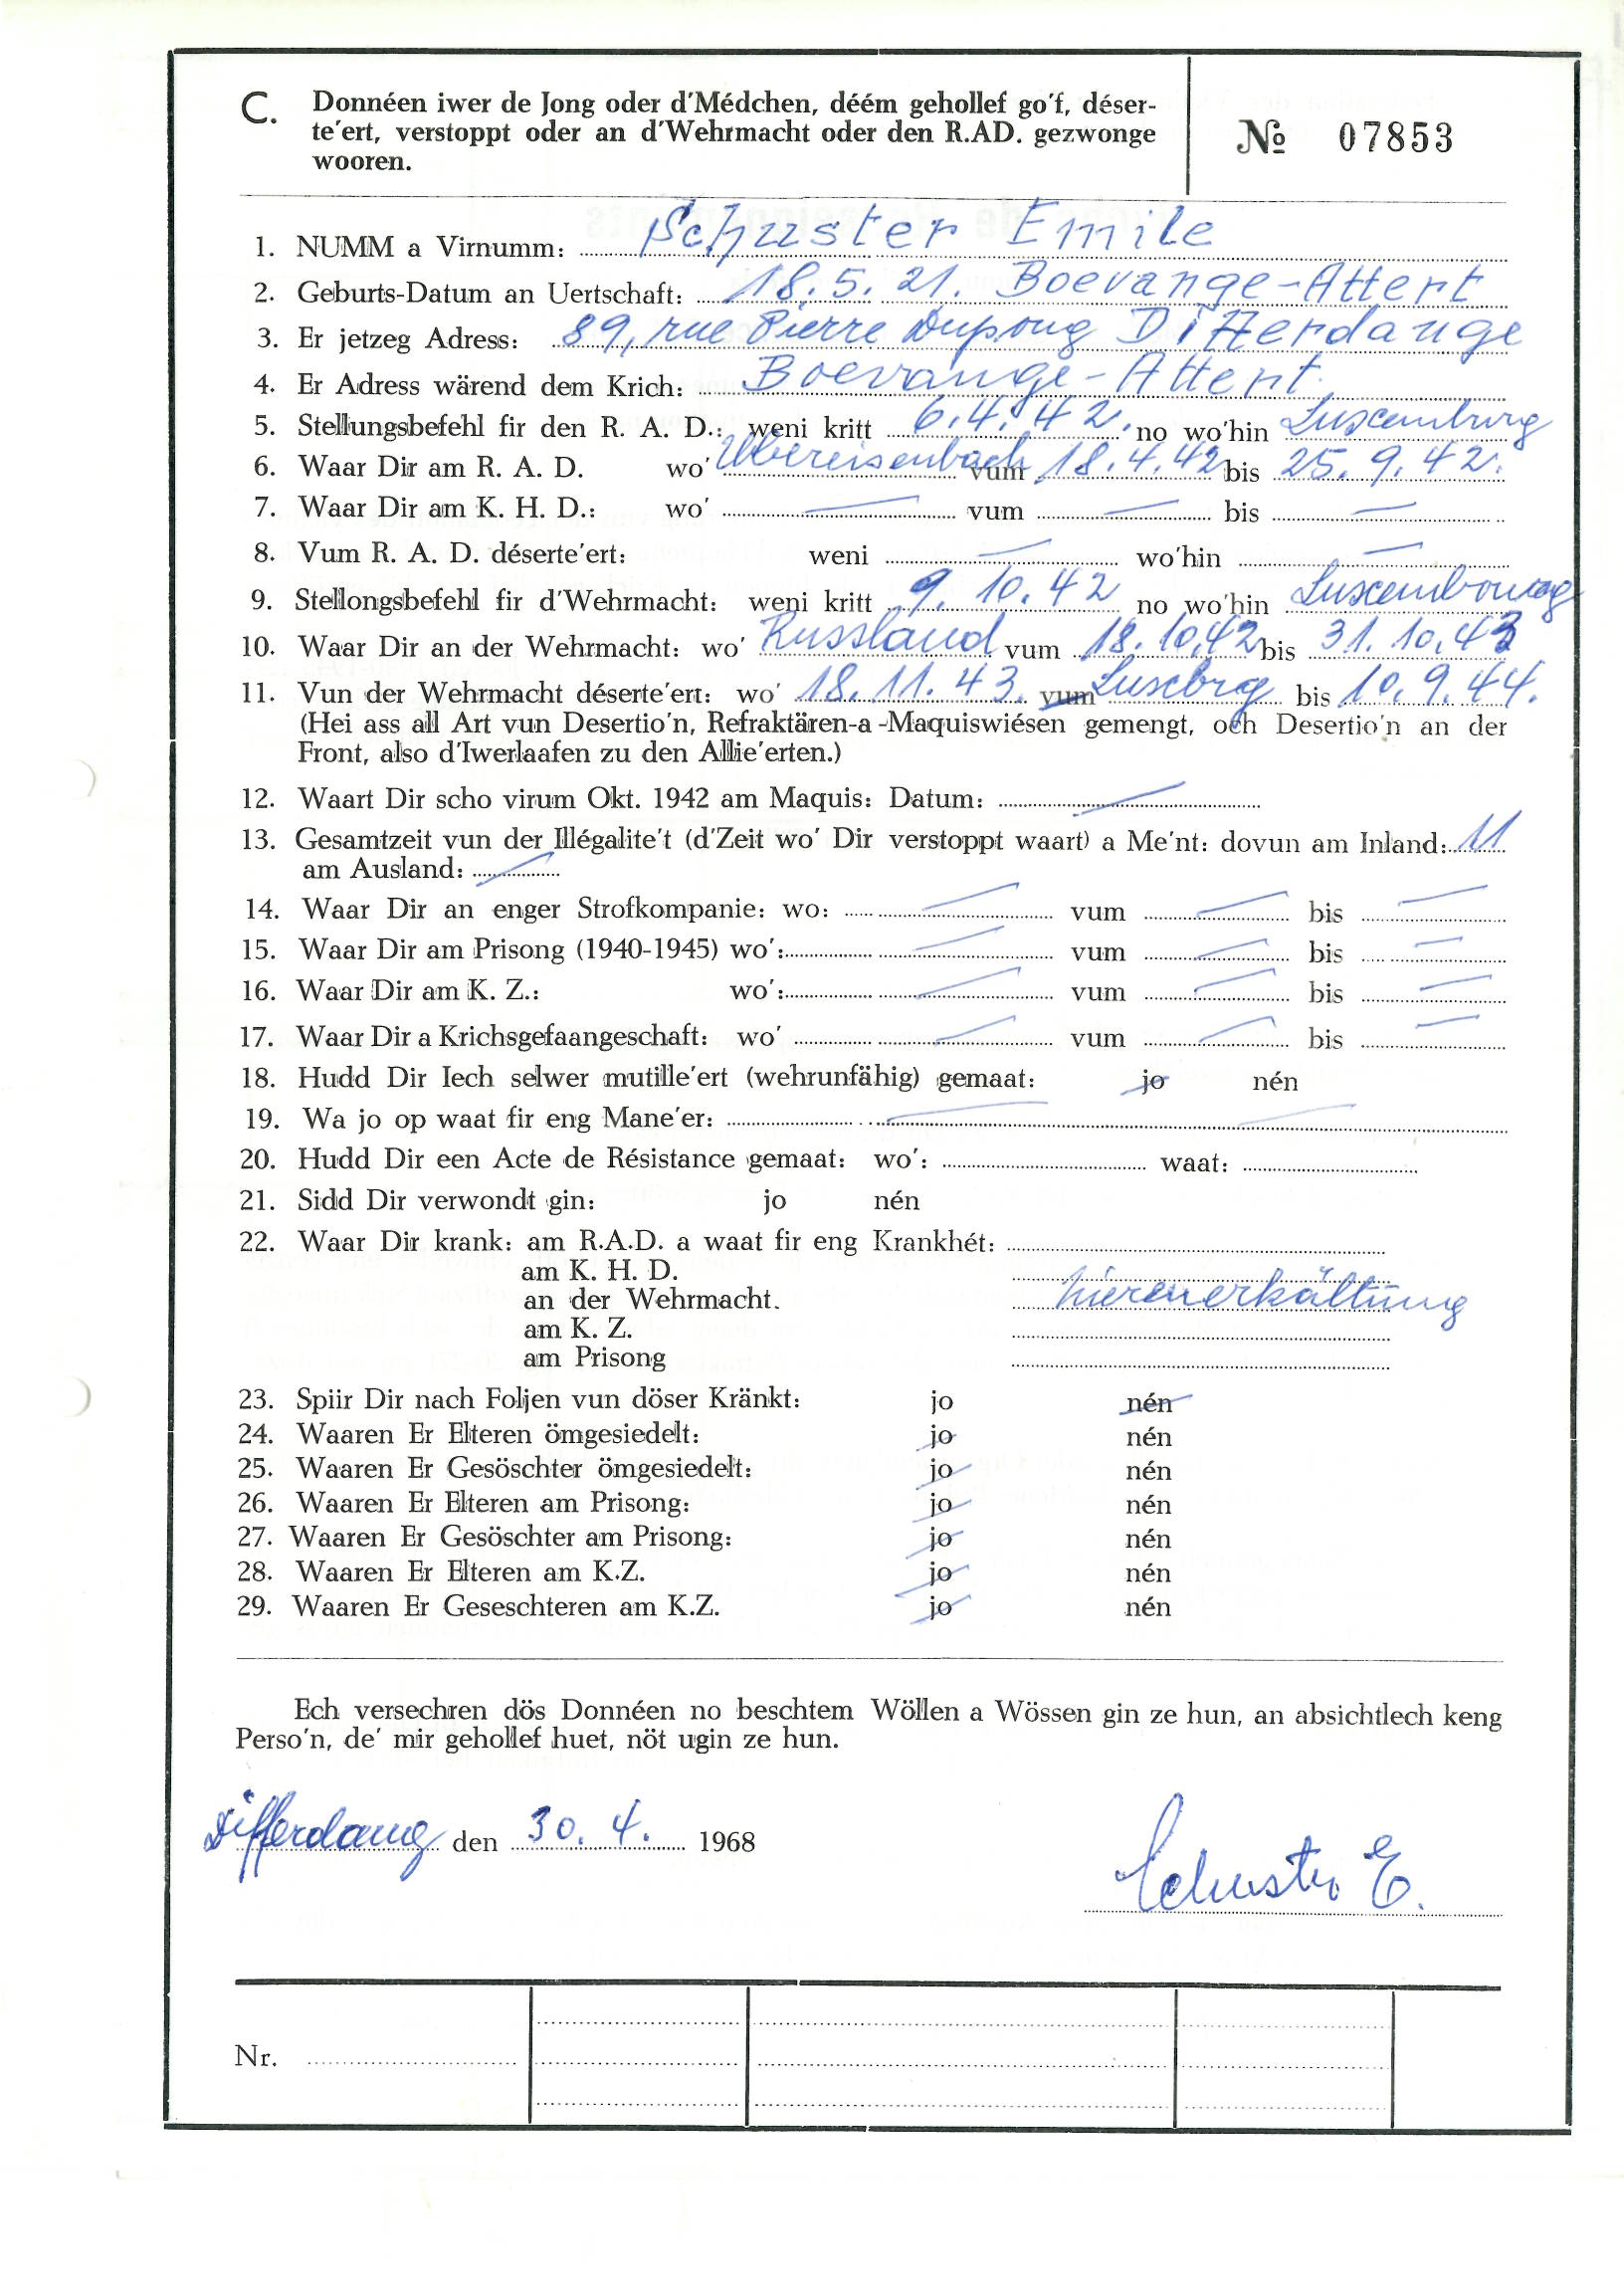 C. Donnéen iwer de Jong oder d'Médchen, déém gehollef go'f, déser-
te'ert, verstoppt oder an d'Wehrmacht oder den R.AD. gezwonge
wooren.
№ 07853
1. NUMM a Virnumm: Schuster Emile
2. Geburts-Datum an Uertschaft: 18.5.21. Boevange-Attert
3. Er jetzeg Adress: 89, rue Pierre Dupong Differdange
4. Er Adress wärend dem Krich: Boevange-Attert.
5. Stellungsbefehl fir den R. A. D.: weni kritt 6.4.42. no wo'hin Luxemburg
6. Waar Dir am R. A. D. wo' Übereisenbach vum 18.4.42 bis 25.9.42.
7. Waar Dir am K. H. D.: wo' — vum — bis —
8. Vum R. A. D. déserte'ert: weni — wo'hin —
9. Stellongsbefehl fir d'Wehrmacht: weni kritt 9.10.42 no wo'hin Luxembourg
10. Waar Dir an der Wehrmacht: wo' Russland vum 18.10.42 bis 31.10.43
11. Vun der Wehrmacht déserte'ert: wo' 18.11.43. vum Luxbrg bis 10.9.44.
(Hei ass all Art vun Desertio'n, Refraktären-a -Maquiswiésen gemengt, och Desertio'n an der
Front, also d'Iwerlaafen zu den Allie'erten.)
12. Waart Dir scho virum Okt. 1942 am Maquis: Datum: —
13. Gesamtzeit vun der Illégalite't (d'Zeit wo' Dir verstoppt waart) a Me'nt: dovun am Inland: 11
am Ausland: —
14. Waar Dir an enger Strofkompanie: wo: — vum — bis —
15. Waar Dir am Prisong (1940-1945) wo': — vum — bis —
16. Waar Dir am K. Z.: wo': — vum — bis —
17. Waar Dir a Krichsgefaangeschaft: wo' — vum — bis —
18. Hudd Dir Iech selwer mutille'ert (wehrunfähig) gemaat: jo nén
19. Wa jo op waat fir eng Mane'er: — —
20. Hudd Dir een Acte de Résistance gemaat: wo': waat:
21. Sidd Dir verwondt gin: jo nén
22. Waar Dir krank: am R.A.D. a waat fir eng Krankhét:
am K. H. D.
an der Wehrmacht. Nierenerkältung
am K. Z.
am Prisong
23. Spiir Dir nach Foljen vun döser Kränkt: jo nén
24. Waaren Er Elteren ömgesiedelt: jo nén
25. Waaren Er Gesöschter ömgesiedelt: jo nén
26. Waaren Er Elteren am Prisong: jo nén
27. Waaren Er Gesöschter am Prisong: jo nén
28. Waaren Er Elteren am K.Z. jo nén
29. Waaren Er Geseschteren am K.Z. jo nén
Ech versechren dös Donnéen no beschtem Wöllen a Wössen gin ze hun, an absichtlech keng
Perso'n, de' mir gehollef huet, nöt ugin ze hun.
Differdang den 30. 4. 1968
Schuster E.
Nr.